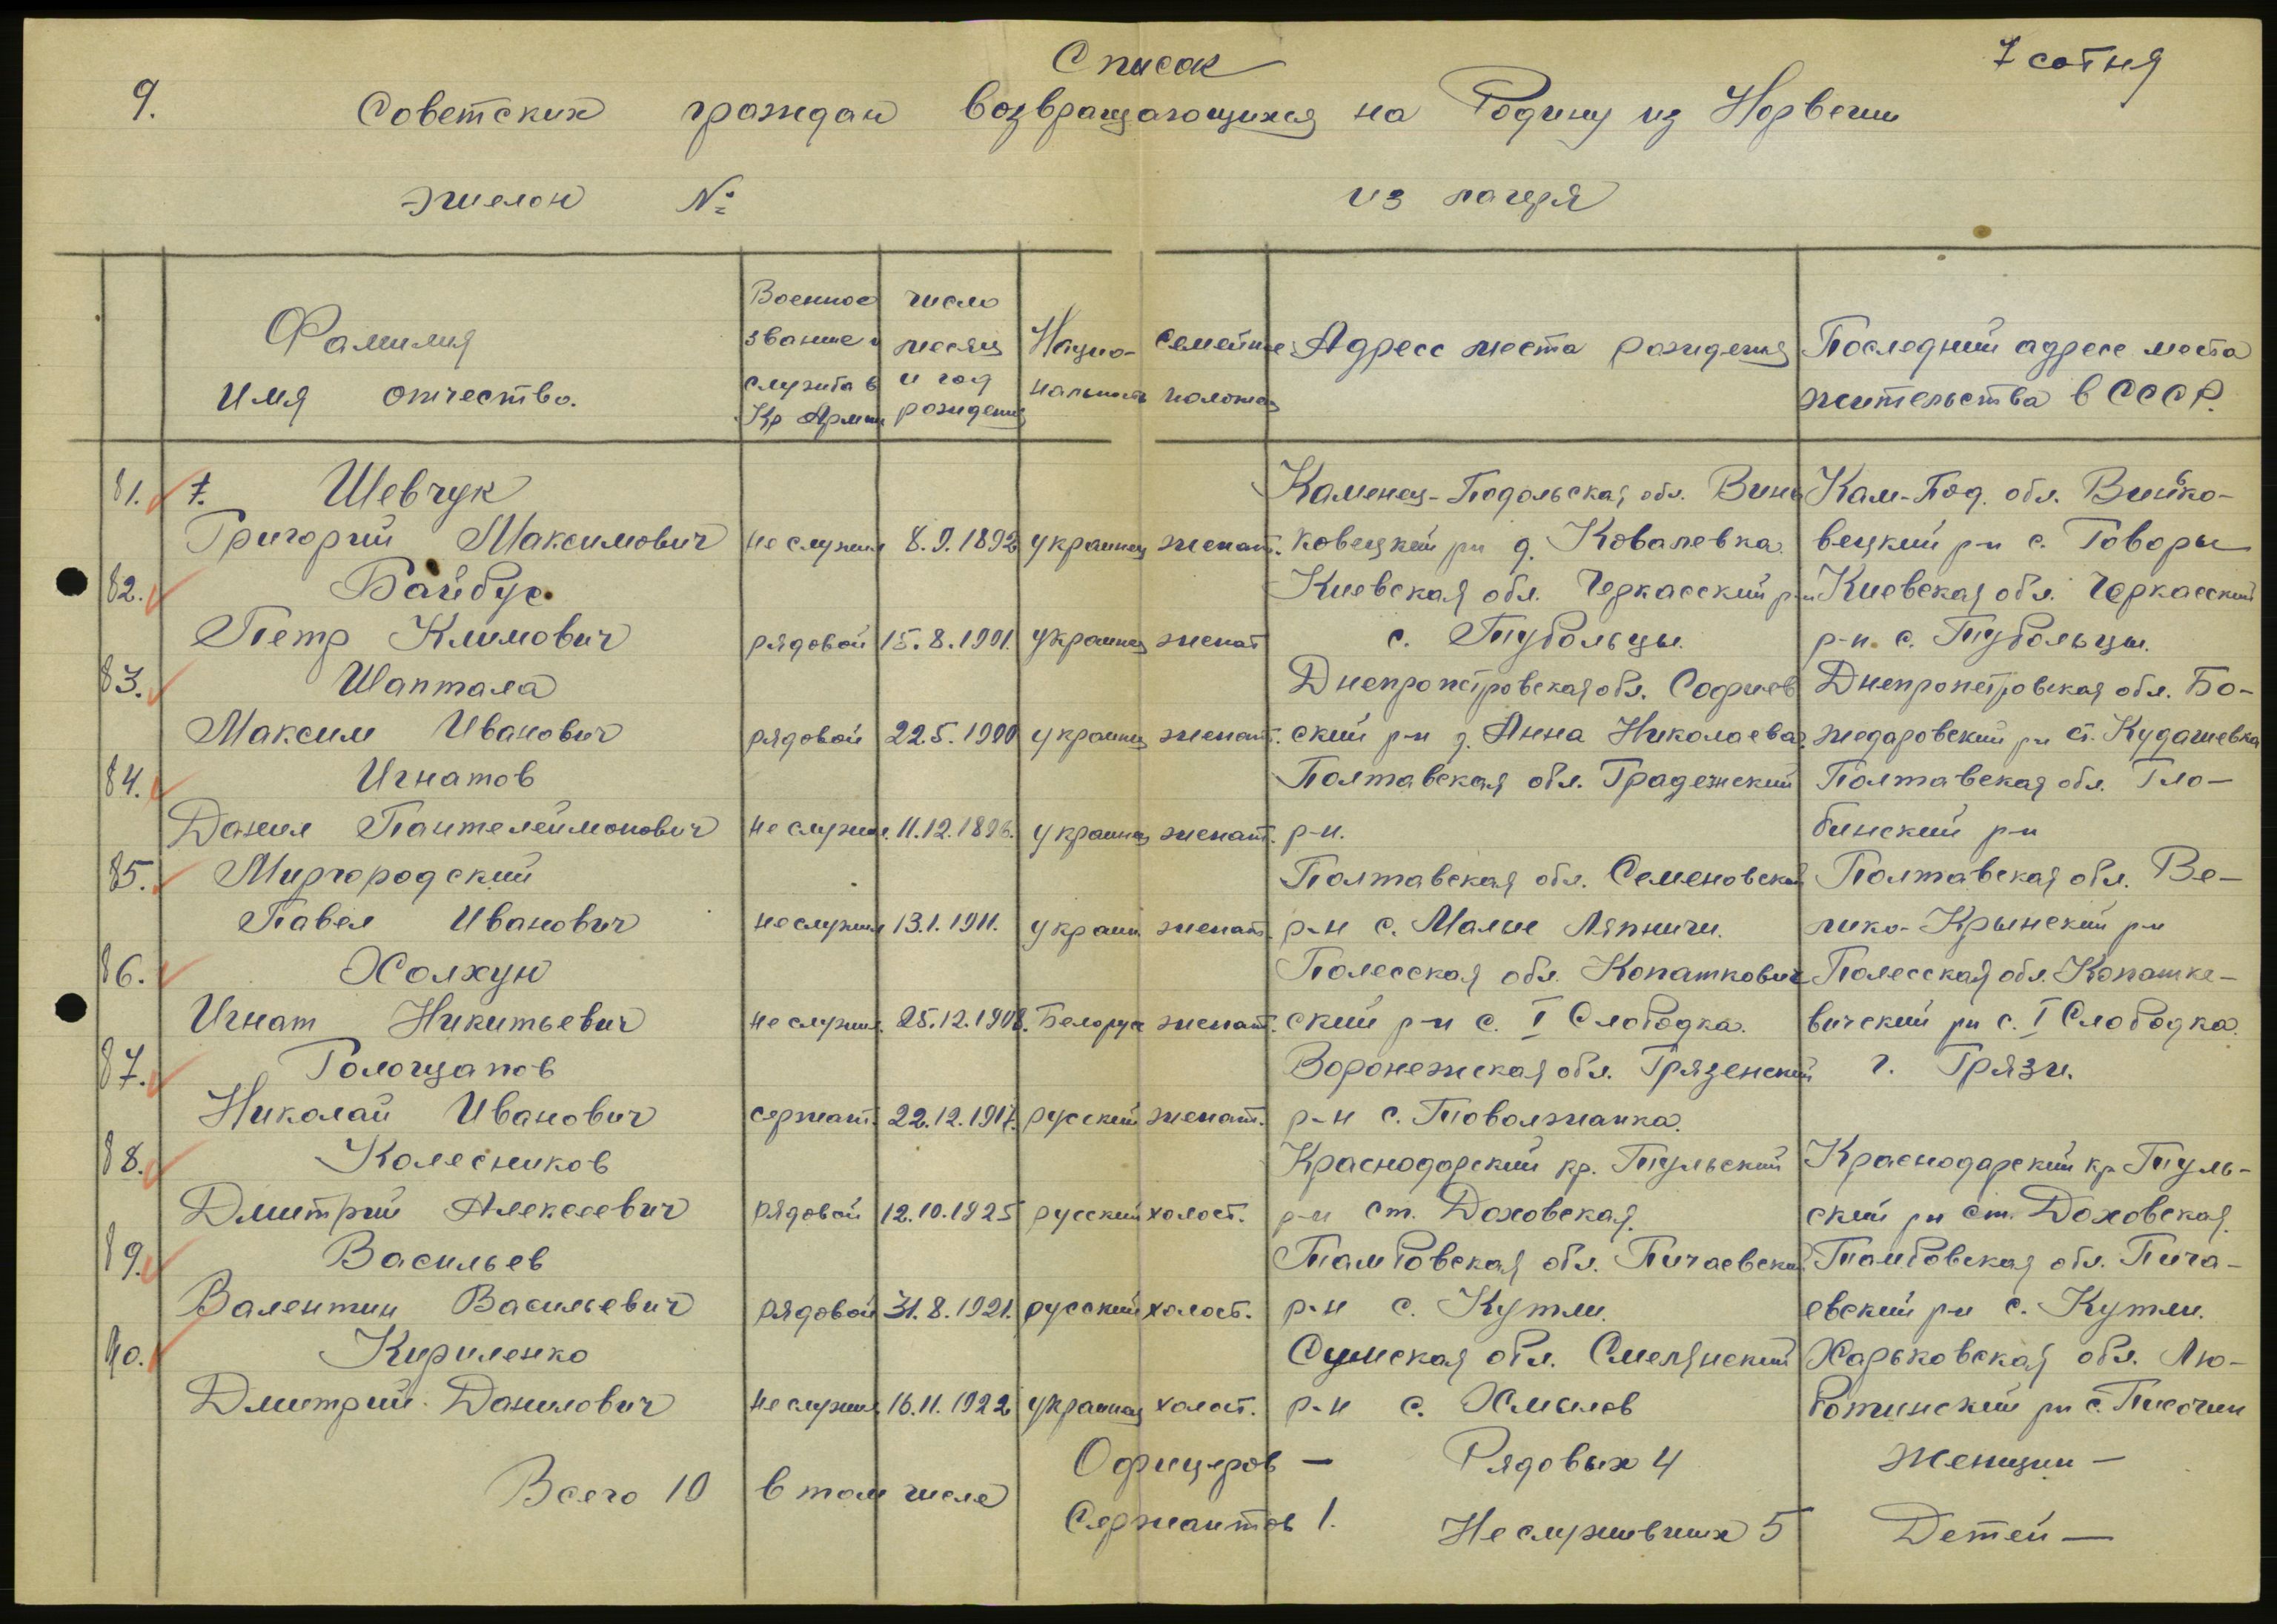 Список
7 сотня
9.
Советских граждан возвращающихся на Родину из Норвегии
эшелон № из лагеря
Фамилия
Имя отчество.
Военное
звание и
служба в
Кр Армии
число
месяц
и год
рождения
Нацио-
нальность
Семейное
положен
Адресс места рождения
Последний адресс места
жительства в СССР.
81. 7. Шевчук Каменец-Подольская обл. Винь Кам-Под. обл. Винько-
Григорий Максимович не служил 8.9.1892 украинец женат. ковецкий рн д. Ковалевка. вецкий р-н с. Говоры
82. Байбус Киевская обл. Черкасский р-н Киевская обл. Черкасский
Петр Климович рядовой 15.8.1901. украинец женат с. Тубольцы. р-н. с. Тубольцы.
83. Шаптала Днепропетровская обл. Софиев Днепропетровская обл. Бо-
Максим Иванович рядовой 22.5.1900 украинец женат. ский р-н д. Анна Николаевка. жедаровский рн ст. Кудашевка
84. Игнатов Полтавская обл. Градежский Полтавская обл. Гло-
Данил Пантелеймонович не служил. 11.12.1896. украинец женат. р-н. бинский р-н
85. Миргородский Полтавская обл. Семеновский Полтавская обл. Ве-
Павел Иванович не служил 13.1.1911. украин женат. р-н с. Малие Ляпничи. лико-Крынский р-н
86. Холхун Полесская обл. Копаткович Полесская обл. Копатке-
Игнат Никитьевич не служил. 25.12.1908. Белорус женат. ский р-н с. I Слободка. вичский рн с. I Слободка.
87. Голощапов Воронежская обл. Грязенский г. Грязи.
Николай Иванович сержант. 22.12.1917. русский женат. р-н с. Товолжанка.
88. Колесников Краснодарский кр. Тульский Краснодарский кр Туль-
Дмитрий Алексеевич рядовой 12.10.1925 русский холост. р-н ст. Доховская. ский рн ст. Доховская.
89. Васильев Тамбовская обл. Пичаевский Тамбовская обл. Пича-
Валентин Васильевич рядовой 31.8.1921. русский холост. р-н с. Кутли. евский р-н с. Кутли.
90. Кириленко Сумская обл. Смелянский Харьковская обл. Лю-
Дмитрий Данилович не служил. 16.11.1922 украинец холост. р-н с. Хмилов ботинский рн с. Писочин
Офицеров — Рядовых 4 Женщин —
Всего 10 в том числе
Сержантов 1. Не служивших 5 Детей —